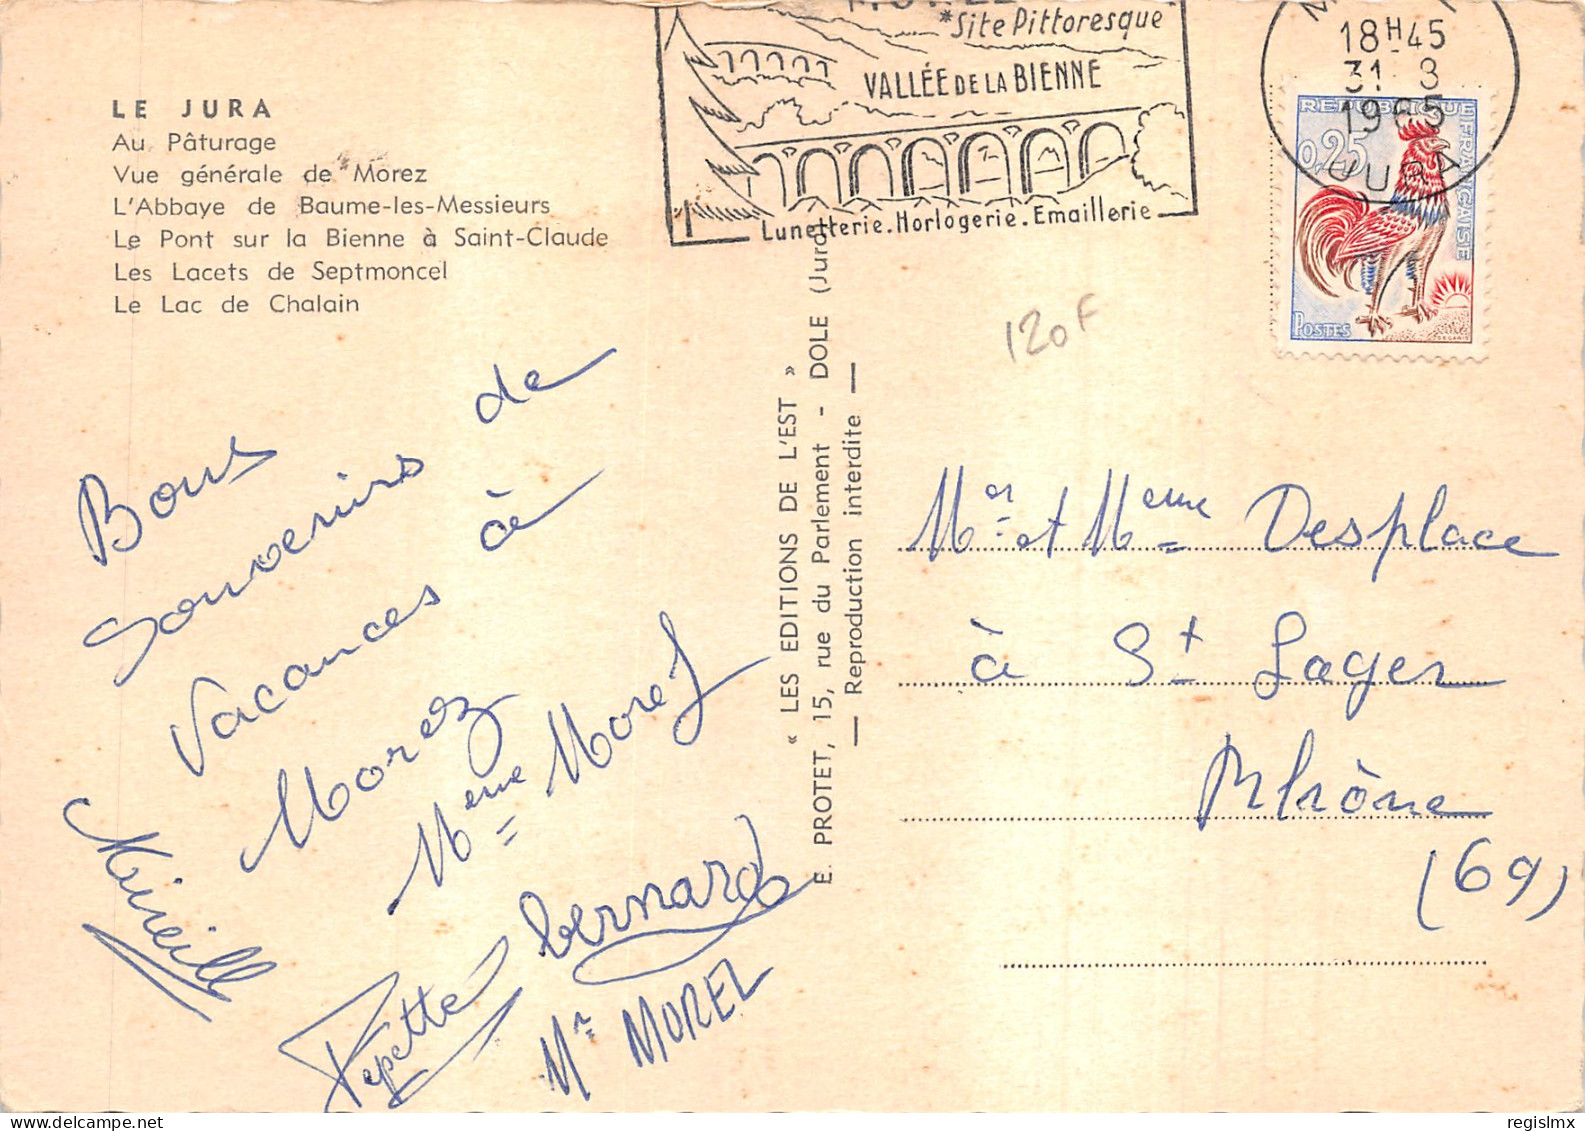 LE JURA
Au Pâturage
Vue générale de Morez
L'Abbaye de Baume-les-Messieurs
Le Pont sur la Bienne à Saint-Claude
Les Lacets de Septmoncel
Le Lac de Chalain
*Site Pittoresque
VALLÉE DE LA BIENNE
Lunetterie. Horlogerie. Emaillerie
18H45
31 8
1965
JURA
REPUBLIQUE FRANÇAISE
0,25
POSTES
120F
Bons
Souvenirs de
Vacances à
Morez
Mireille
Mme Morel
bernard
Pepette
Mr MOREL
« LES EDITIONS DE L'EST »
E. PROTET, 15, rue du Parlement - DOLE (Jura)
— Reproduction interdite —
Mr et Mme Desplace
à St Lager
Rhône
(69)
regislmx